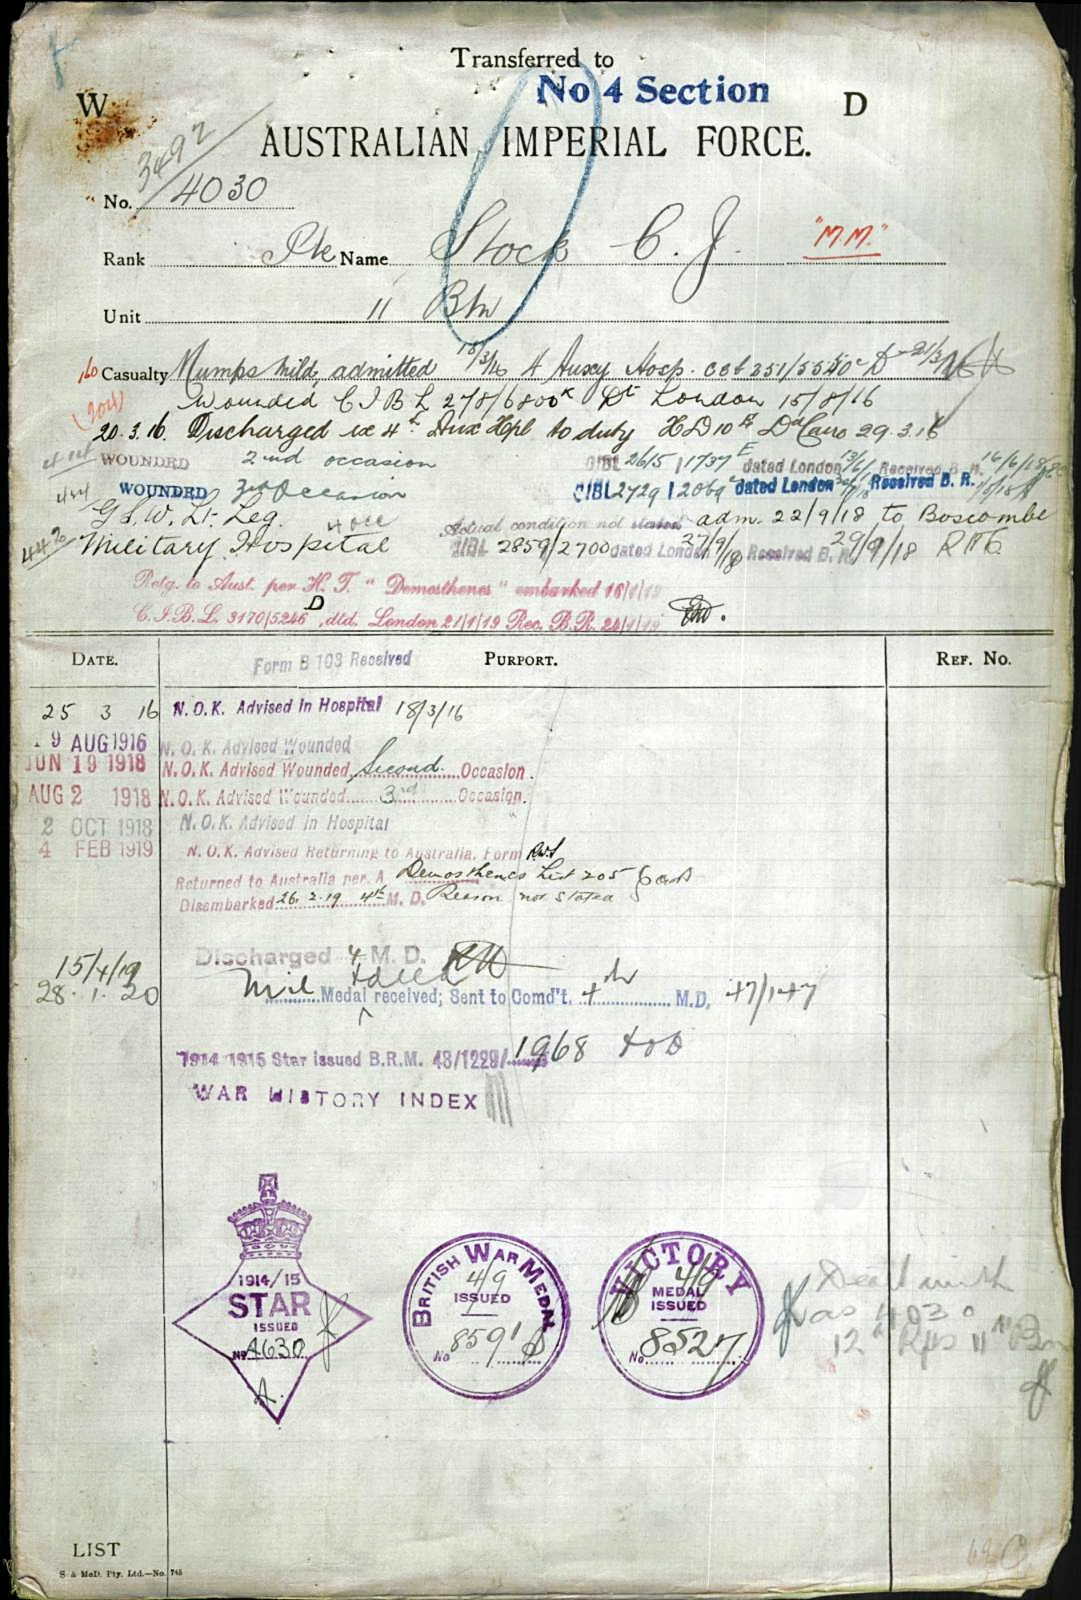 Transferred to
No 4 Section
W D
AUSTRALIAN IMPERIAL FORCE.
3492
No. 4030
Rank Pte Name Stock C. J. "M.M."
Unit 11 Btn
Casualty Mumps Mild, admitted 18/3/16 4 Auxy Hosp.
Wounded C I B L 278/6800 Dt London 15/8/16
20.3.16. Discharged ex 4th Aux Hpl to duty Cairo 29.3.16
WOUNDED 2nd occasion CIBL 2615/1737 E dated London 13/6/ Received B. R. 16/6/18
WOUNDED 3rd Occasion CIBL 2729/2069 dated London Received B. R.
G.S.W. Lt. Leg. 4 occ Actual condition not stated adm. 22/9/18 to Boscombe
Military Hospital CIBL 2859/2700 dated London 27/9/18 Received B. R. 29/9/18
Retg. to Aust. per H. T. "Demosthenes" embarked 16/1/19
C.I.B.L. 3170/5246 D, dtd. London 21/1/19 Rec. B.R. 24/1/19
DATE. Form B 103 Received PURPORT. REF. NO.
25 3 16 N.O.K. Advised in Hospital 18/3/16
19 AUG 1916 N.O.K. Advised Wounded
JUN 19 1918 N.O.K. Advised Wounded Second Occasion.
AUG 2 1918 N.O.K. Advised Wounded 3rd Occasion.
2 OCT 1918 N.O.K. Advised in Hospital
4 FEB 1919 N.O.K. Advised Returning to Australia. Form
Returned to Australia per. A Demosthenes List 205
Disembarked 26. 2. 19 4th M. D. Reason not stated
15/4/19 Discharged 4 M. D.
28. 1. 20 Mil Medal received; Sent to Comd't. 4th M.D. 47/147
1914 1915 Star issued B.R.M. 43/1229/ 1968
WAR HISTORY INDEX
1914/15
STAR
ISSUED
No 4630
A.
BRITISH WAR MEDAL
4/9
ISSUED
No 8591
VICTORY
4/9
MEDAL
ISSUED
No 8527
Dealt with
as 4030
12th Rfts 11th Bn
LIST
S & McD. Pty. Ltd.—No. 745